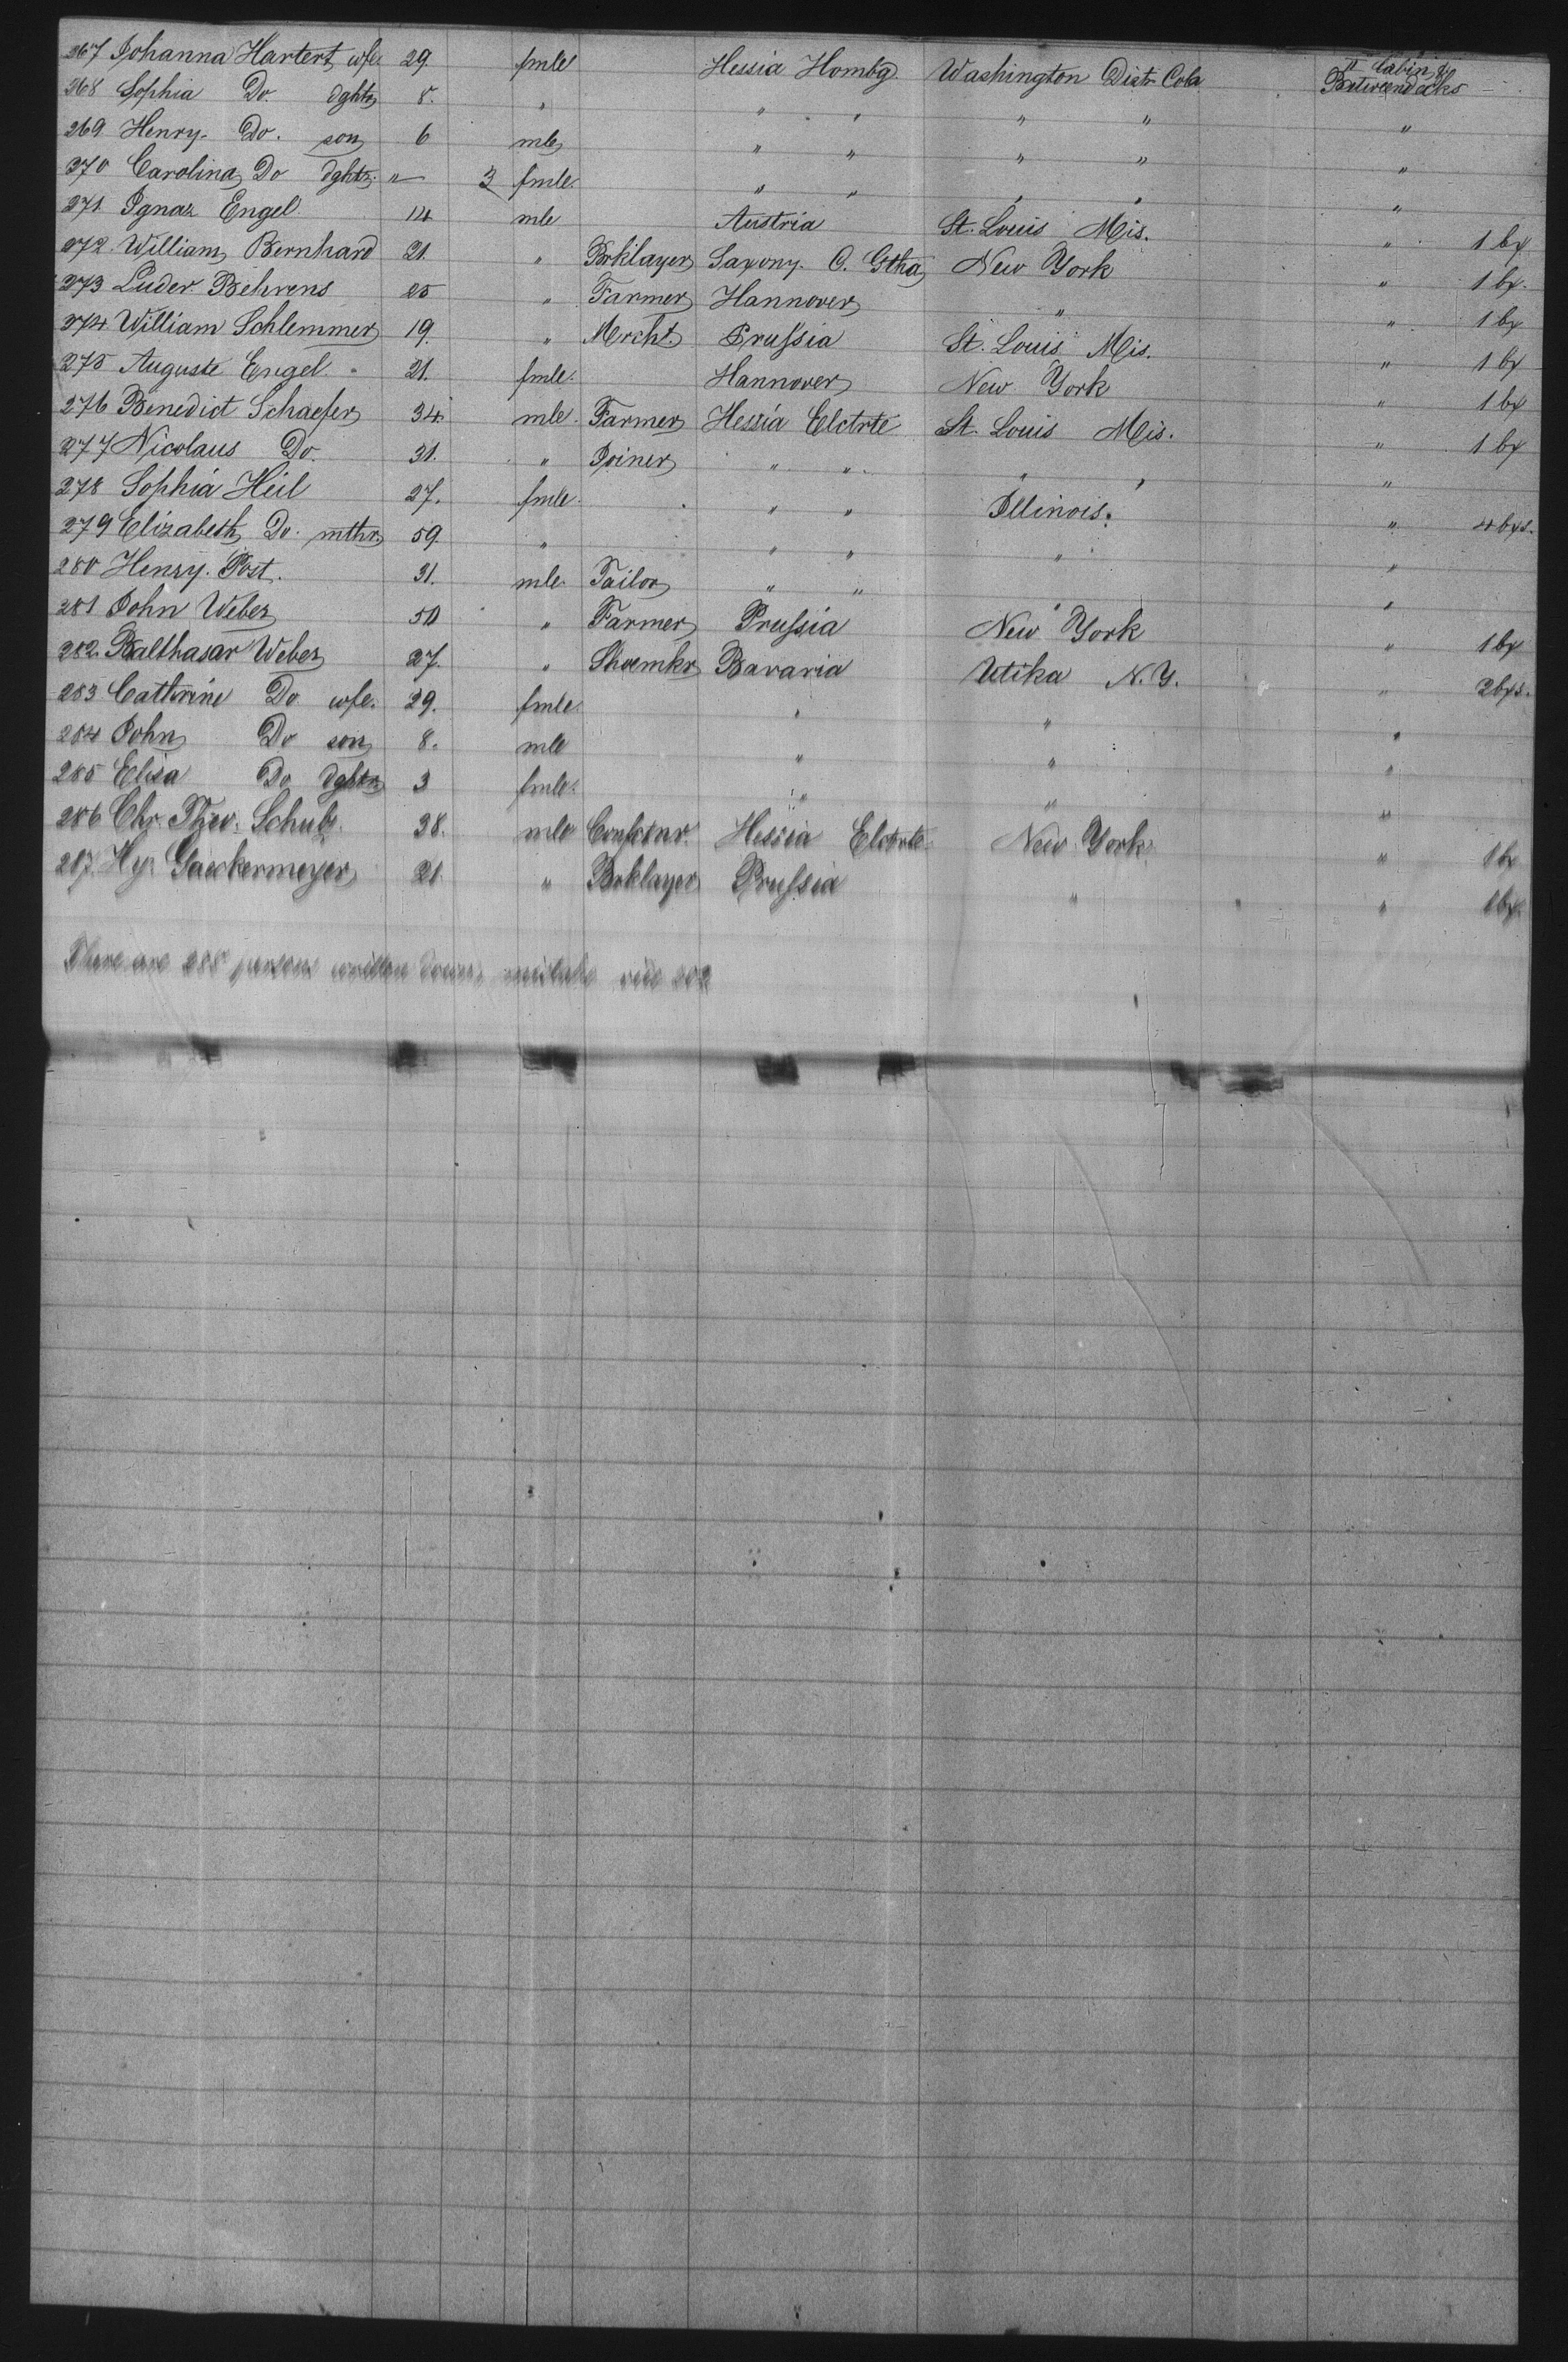 267 Johanna Hartert wfe. 29. fmle Hessia Hombg. Washington Distr. Cola " Cabin & Betweendecks
268 Sophia Do. dghtr 8. " " " " " "
269 Henry. Do. son 6 mle " " " " "
270 Carolina Do dghtr. " 3 fmle. " " " " "
271. Ignaz Engel. 14 mle Austria St. Louis Mis. " 1 bx
272. William Bernhard 21. " Brklayer Saxony. C. Gtha New York " 1 bx.
273 Luder Behrens 25 " Farmer Hannover " " 1 bx
274 William Schlemmer 19. " Mercht. Prussia St. Louis Mis. " 1 bx
275 Auguste Engel. 21. fmle. Hannover New York " 1 bx
276 Benedict Schaefer 34. mle. Farmer Hessia Elctrte St. Louis Mis. " 1 bx
277 Nicolaus Do. 31. " Joiner " " " " "
278 Sophia Heil 27. fmle. " " Illinois. " 4 bxs.
279 Elizabeth Do. mthr 59. " " " " "
280 Henry. Post. 31. mle. Tailor " " " "
281 John Weber 50 " Farmer Prussia New York " 1 bx
282. Balthasar Weber 27. " Shoemkr Bavaria Utika N.Y. " 2 bxs.
283 Cathrine Do wfe. 29. fmle. " " "
284 John Do son 8. mle " " "
285 Elisa Do dghtr 3 fmle. " " "
286 Chr. Theo. 38. mle Hessia Elctrte New York " 1 bx
287. Hy. Gaeckermeyer 21. " Brklayer Prussia " " 1 bx.
There are 288 persons written down,